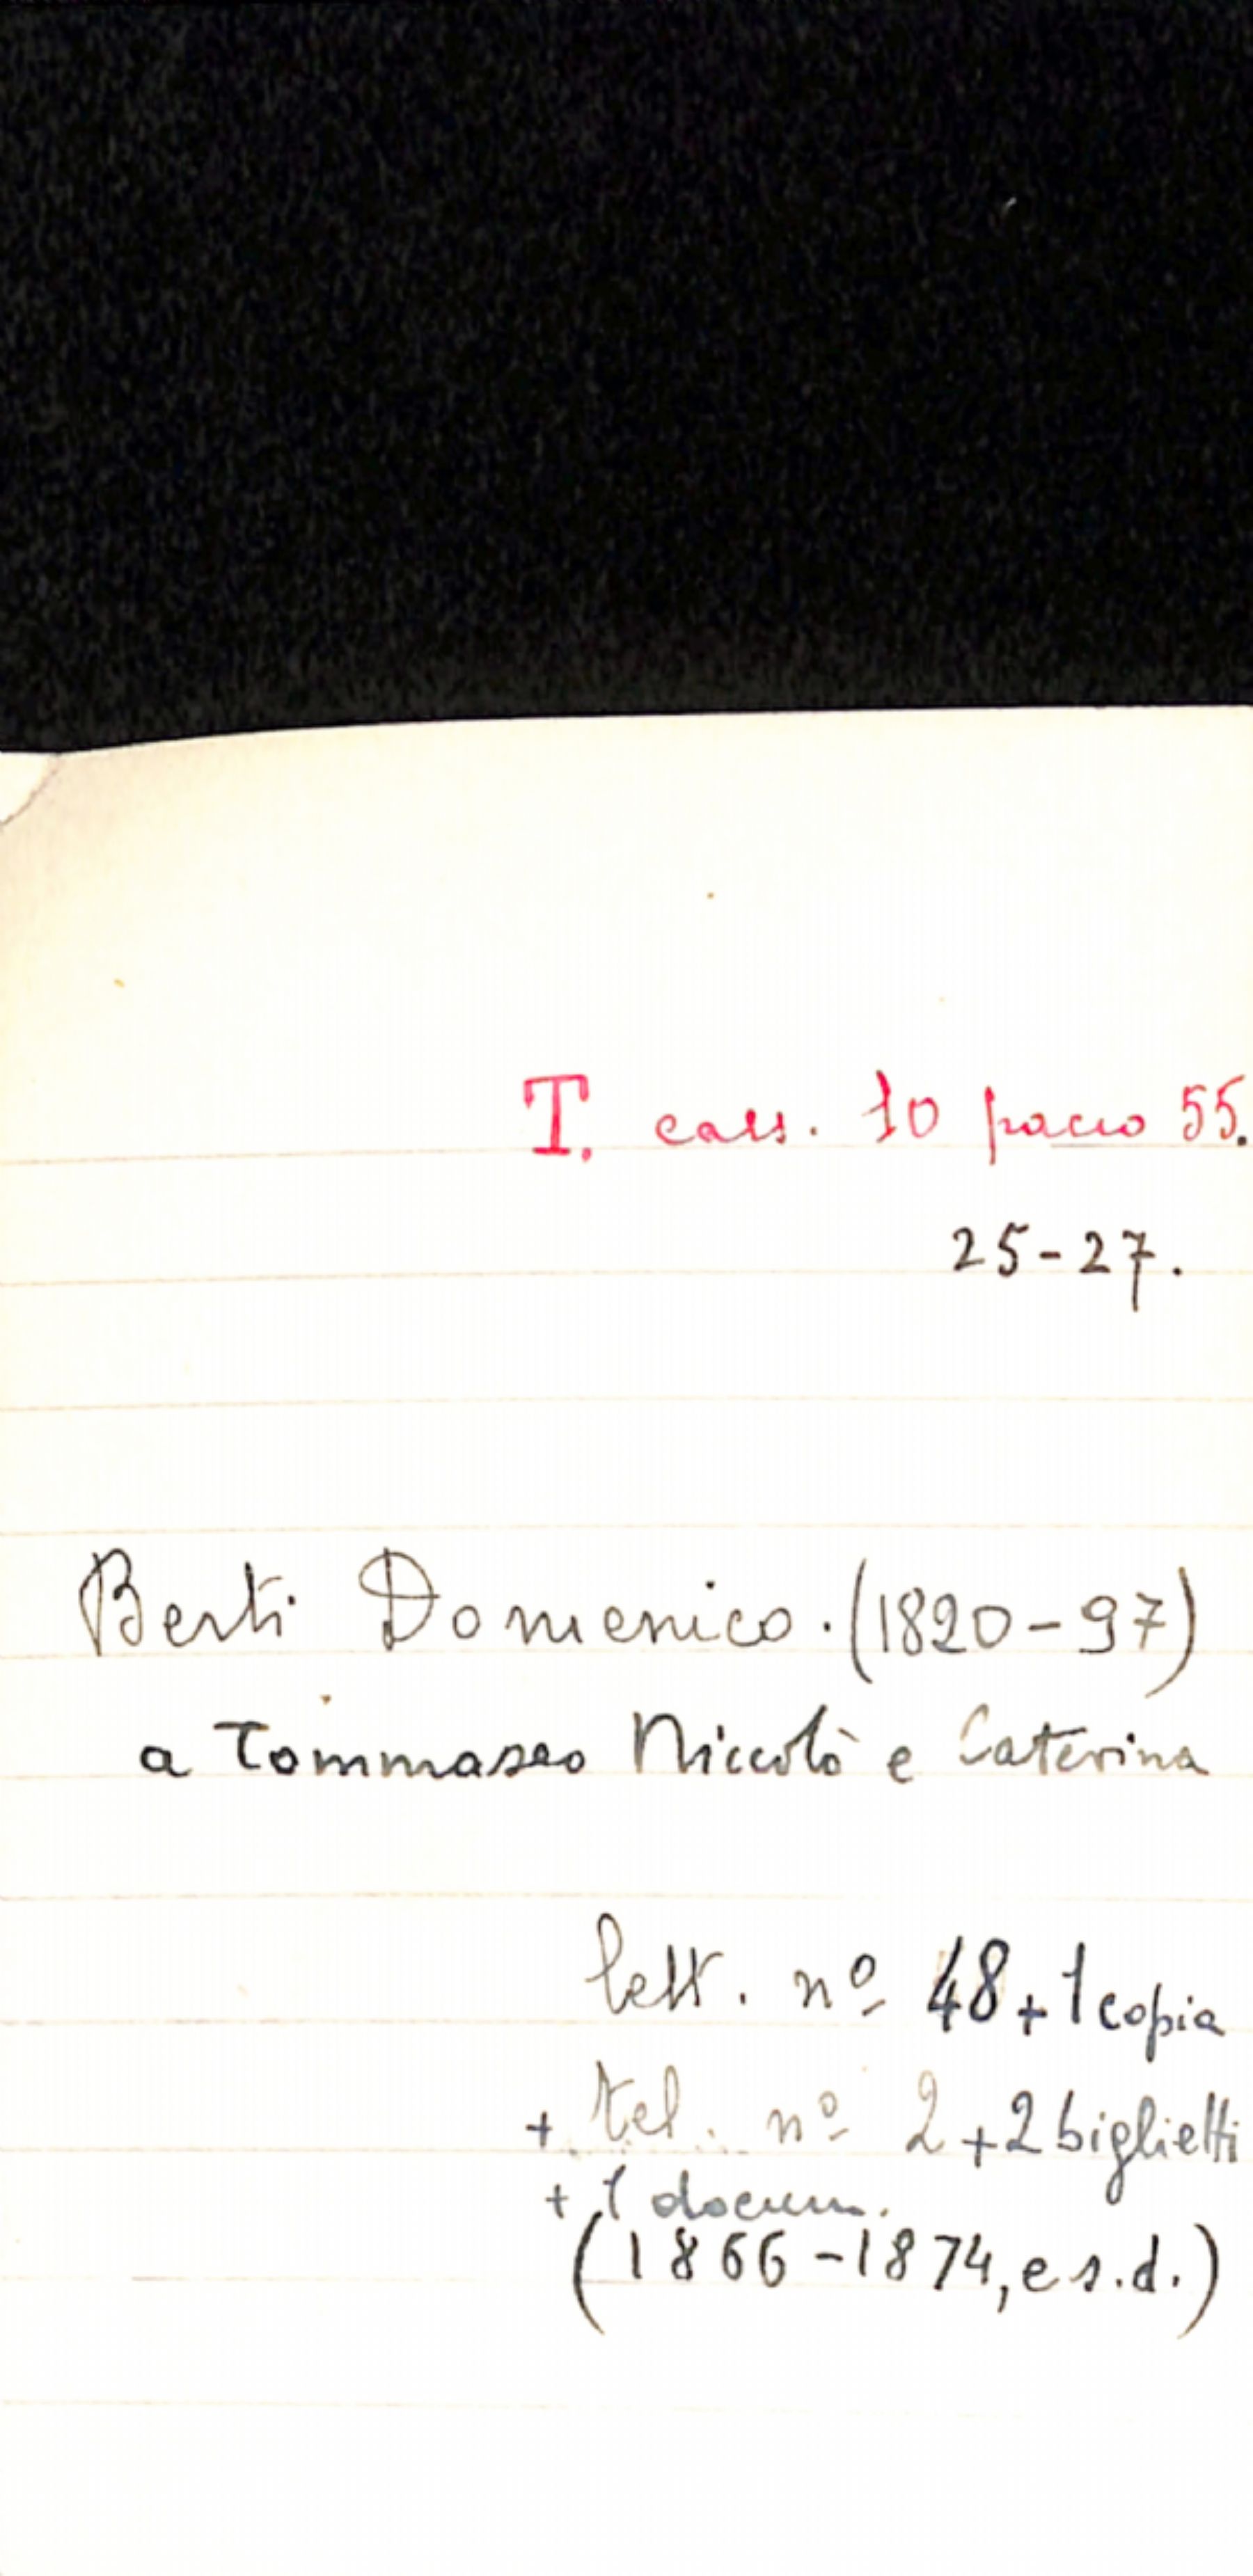 T. cass. 10 pacco 55.
25-27.
Berti Domenico. (1820-97)
a Tommaseo Niccolò e Caterina
lett. nº 48 + 1 copia
+ tel. nº 2 + 2 biglietti
+ 1 docum.
(1866-1874, e s.d.)